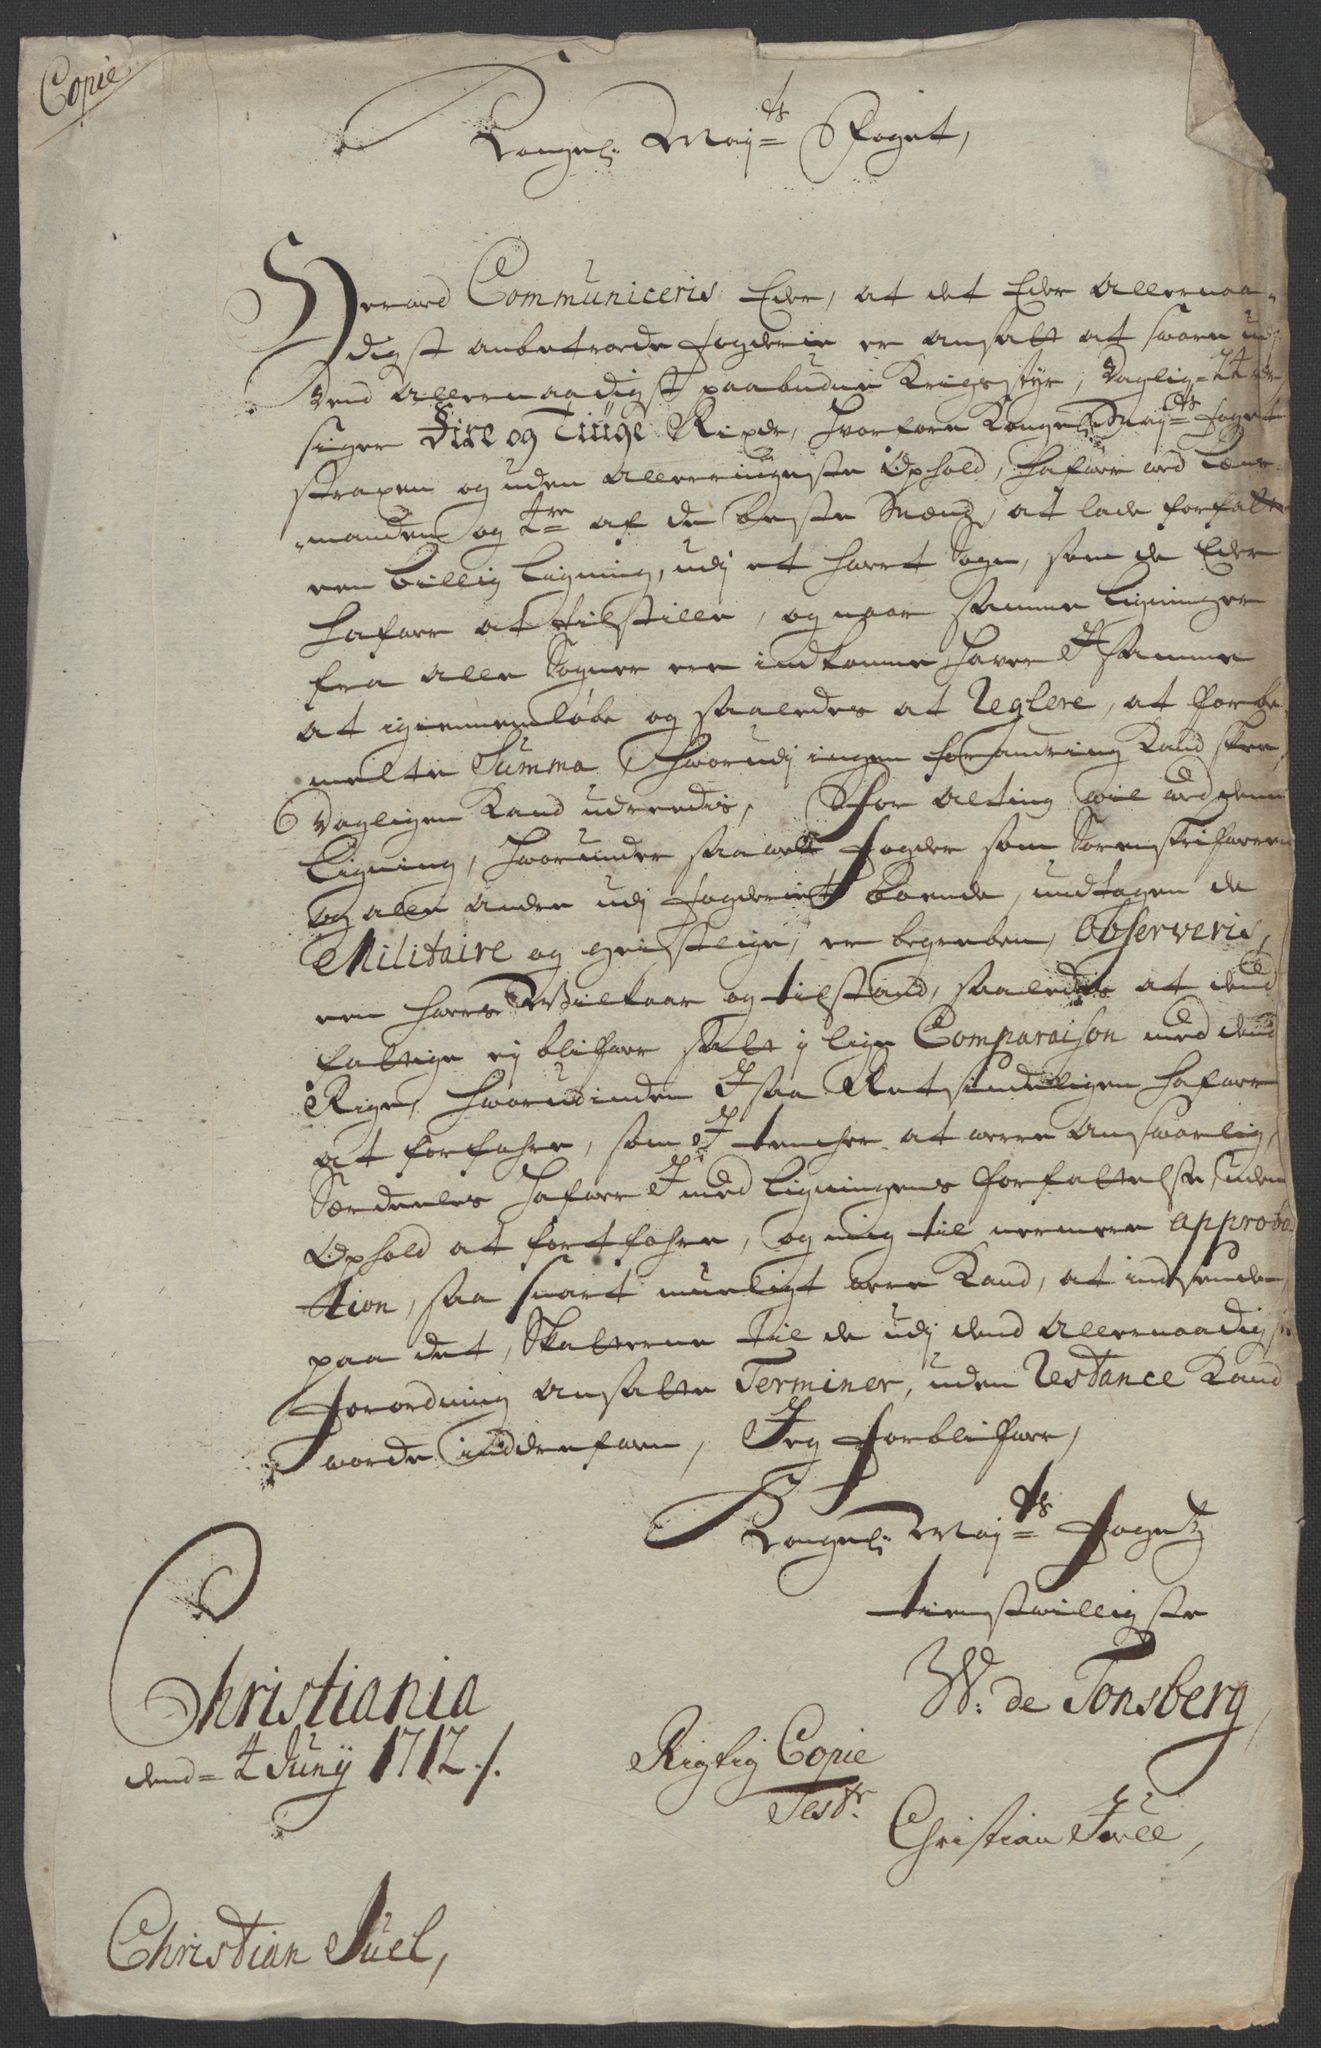 Copie
Kongel: May:ts Foget,
Hermed Communiceris Eder, at det Eder Allernaa-
digst anbetroede fogderie er ansatt at svare udj
dend Allernaadigst paabudne Krigsstyr, Daglig 24 rdr
siger Fire og Tiuge Rixdr, hvorfore Kongel: May:ts foget
strapen og uden Allerringeste Ophold, hafuer ved Lens-
manden og tre af de beste Mænd, at lade forfatte
een billig ligning, udj et hvert Sogn, som de Eder
hafuer at tilstille, og naar samme ligninger
fra alle Sogner ere indkomne haver I samme
at igiennemløbe og saaledes at Reglere, at forbe-
melte Summa, hvorudj ingen forandring Kand skee,
Dagligen Kand udreedis, For alting vil ved denne
Ligning, hvorunder saavell fogder som Sorenskrifueren
og alle andre udj fogderiet boende, undtagen de
Militaire og geistlige, er begreben, observeris,
een hvers Vilkaar og tilstand, saaledis at dend
fattige ej blifuer satt j lige Comparaison med dend
Rige, hvorudinden I saa Retsindeligen hafuer
at forfahre, som I tencher at verre ansvarlig,
Særdeeles hafuer I med ligningens forfattelse uden
Ophold at fortfahre, og mig til nermere approba-
tion, saa snart mueligt vere Kand, at indsende,
paa det, Skatterne til de udj dend Allernaadigste
forordning ansatte Terminer, uden Restance Kand
vorde inddrefuen, Jeg forblifuer,
Kongel: May:ts fogetz
tienstvilligste
W: de Tonsberg,
Christiania
dend= 4 Junij 1712 ./.
Rigtig Copie
Test:r
Christian Juell,
Christian Juel,